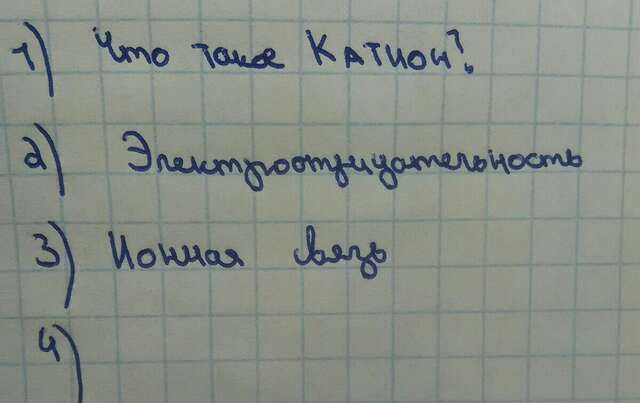 1) Что такое Катион?
2) Электроотрицательность
3) Ионная связь
4)